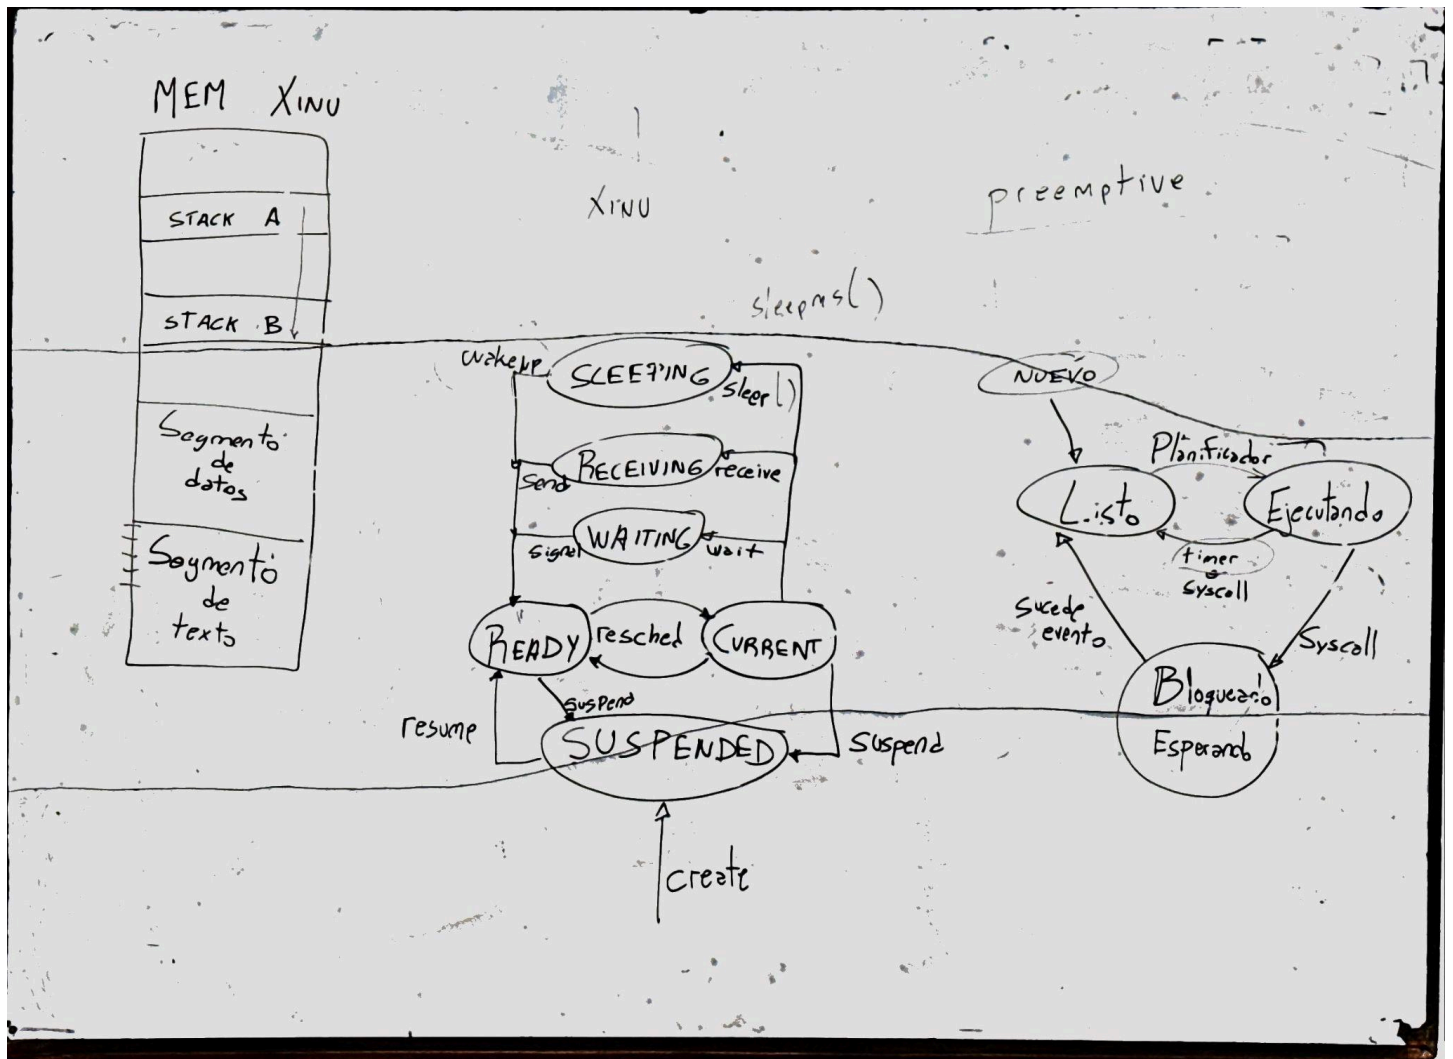 MEM XINU
STACK A
STACK B
Segmento
de
datos
Segmento
de
texto
XINU
sleepms()
wakeup
SLEEPING
sleep()
RECEIVING
send
receive
WAITING
signal
wait
READY
resched
CURRENT
suspend
resume
SUSPENDED
suspend
create
preemptive
NUEVO
Planificador
Listo
Ejecutando
timer
o
syscall
Sucede
evento
Syscall
Bloqueado
Esperando